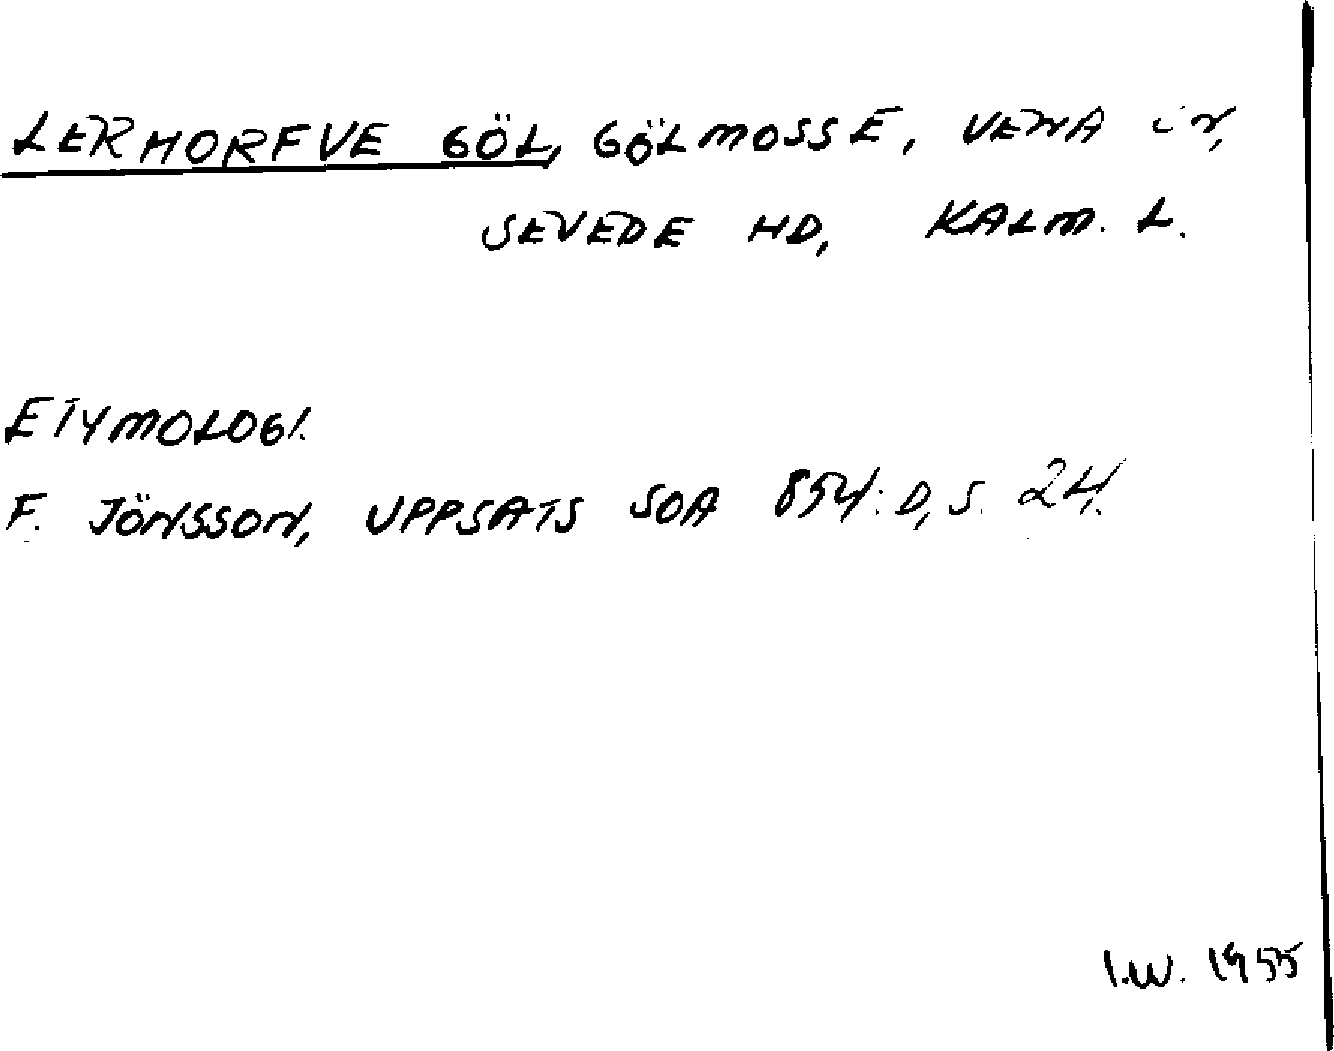 LERHORFVE GÖL, GÖLMOSSE, VENA sn,
SEVEDE HD, KALM. L.
ETYMOLOGI.
F. JÖNSSON, UPPSATS SOA 854:D, S. 24.
I.W. 1955